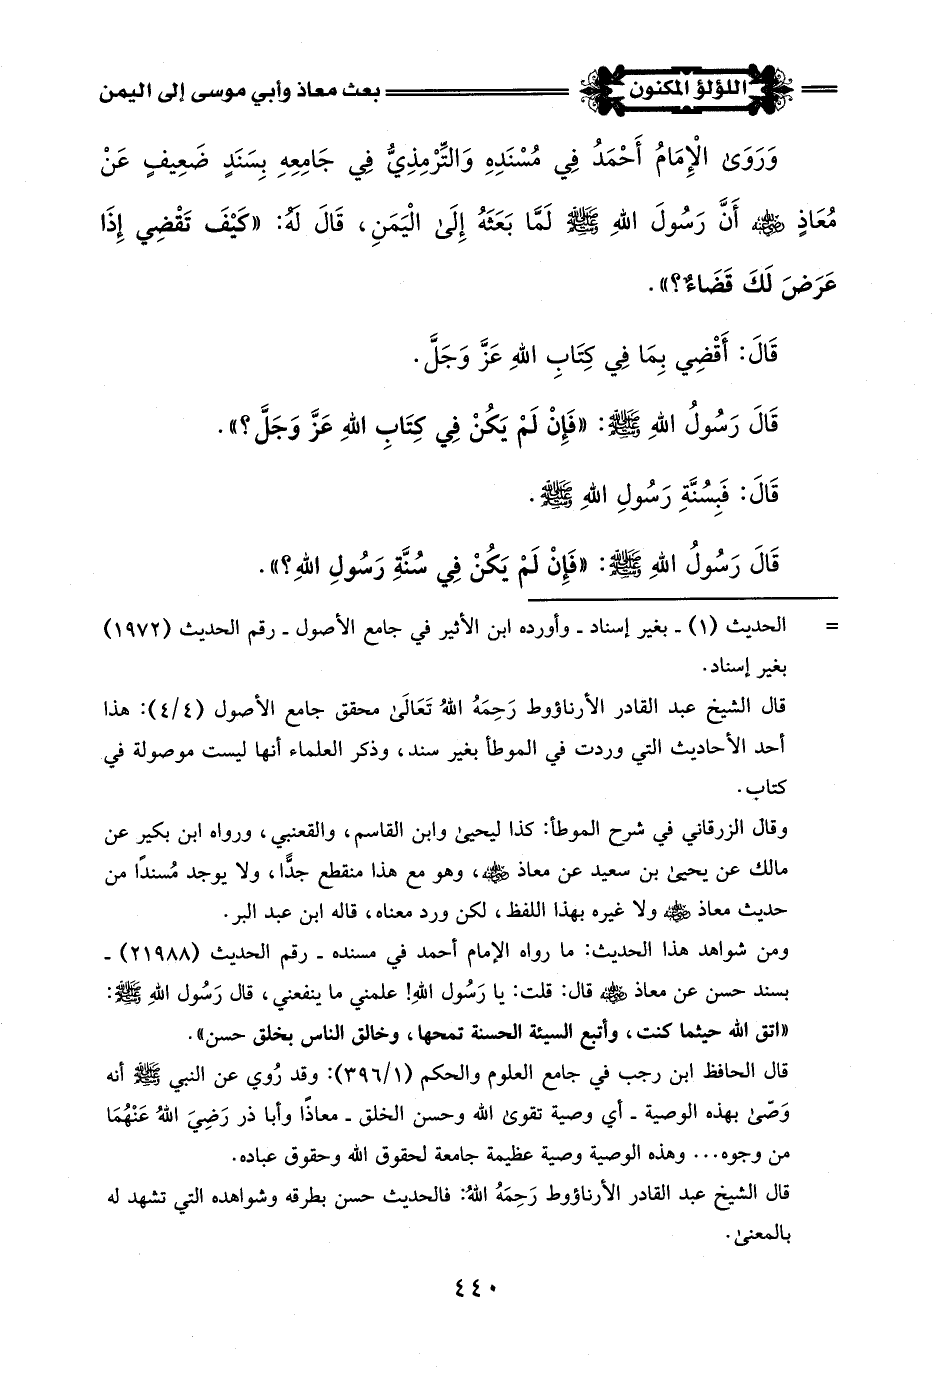 اللؤلؤ المكنون
بعث معاذ وأبي موسى إلى اليمن
وَرَوَىٰ الْإِمَامُ أَحْمَدُ فِي مُسْنَدِهِ وَالتِّرْمِذِيُّ فِي جَامِعِهِ بِسَنَدٍ ضَعِيفٍ عَنْ
مُعَاذٍ ﵁ أَنَّ رَسُولَ اللهِ ﷺ لَمَّا بَعَثَهُ إِلَىٰ الْيَمَنِ، قَالَ لَهُ: «كَيْفَ تَقْضِي إِذَا
عَرَضَ لَكَ قَضَاءٌ؟».
قَالَ: أَقْضِي بِمَا فِي كِتَابِ اللهِ عَزَّ وَجَلَّ.
قَالَ رَسُولُ اللهِ ﷺ: «فَإِنْ لَمْ يَكُنْ فِي كِتَابِ اللهِ عَزَّ وَجَلَّ؟».
قَالَ: فَبِسُنَّةِ رَسُولِ اللهِ ﷺ.
قَالَ رَسُولُ اللهِ ﷺ: «فَإِنْ لَمْ يَكُنْ فِي سُنَّةِ رَسُولِ اللهِ؟».
= الحديث (١) ـ بغير إسناد ـ وأورده ابن الأثير في جامع الأصول ـ رقم الحديث (١٩٧٢)
بغير إسناد.
قال الشيخ عبد القادر الأرناؤوط رَحِمَهُ اللهُ تَعَالَىٰ محقق جامع الأصول (٤/٤): هذا
أحد الأحاديث التي وردت في الموطأ بغير سند، وذكر العلماء أنها ليست موصولة في
كتاب.
وقال الزرقاني في شرح الموطأ: كذا ليحيىٰ وابن القاسم، والقعنبي، ورواه ابن بكير عن
مالك عن يحيىٰ بن سعيد عن معاذ ﵁، وهو مع هذا منقطع جدًّا، ولا يوجد مُسندًا من
حديث معاذ ﵁ ولا غيره بهذا اللفظ، لكن ورد معناه، قاله ابن عبد البر.
ومن شواهد هذا الحديث: ما رواه الإمام أحمد في مسنده ـ رقم الحديث (٢١٩٨٨) ـ
بسند حسن عن معاذ ﵁ قال: قلت: يا رَسُول اللهِ! علمني ما ينفعني، قال رَسُول اللهِ ﷺ:
«اتق الله حيثما كنت، وأتبع السيئة الحسنة تمحها، وخالق الناس بخلق حسن».
قال الحافظ ابن رجب في جامع العلوم والحكم (٣٩٦/١): وقد رُوي عن النبي ﷺ أنه
وَصّىٰ بهذه الوصية ـ أي وصية تقوىٰ الله وحسن الخلق ـ معاذًا وأبا ذر رَضِيَ اللهُ عَنْهُمَا
من وجوه... وهذه الوصية وصية عظيمة جامعة لحقوق الله وحقوق عباده.
قال الشيخ عبد القادر الأرناؤوط رَحِمَهُ اللهُ: فالحديث حسن بطرقه وشواهده التي تشهد له
بالمعنىٰ.
٤٤٠